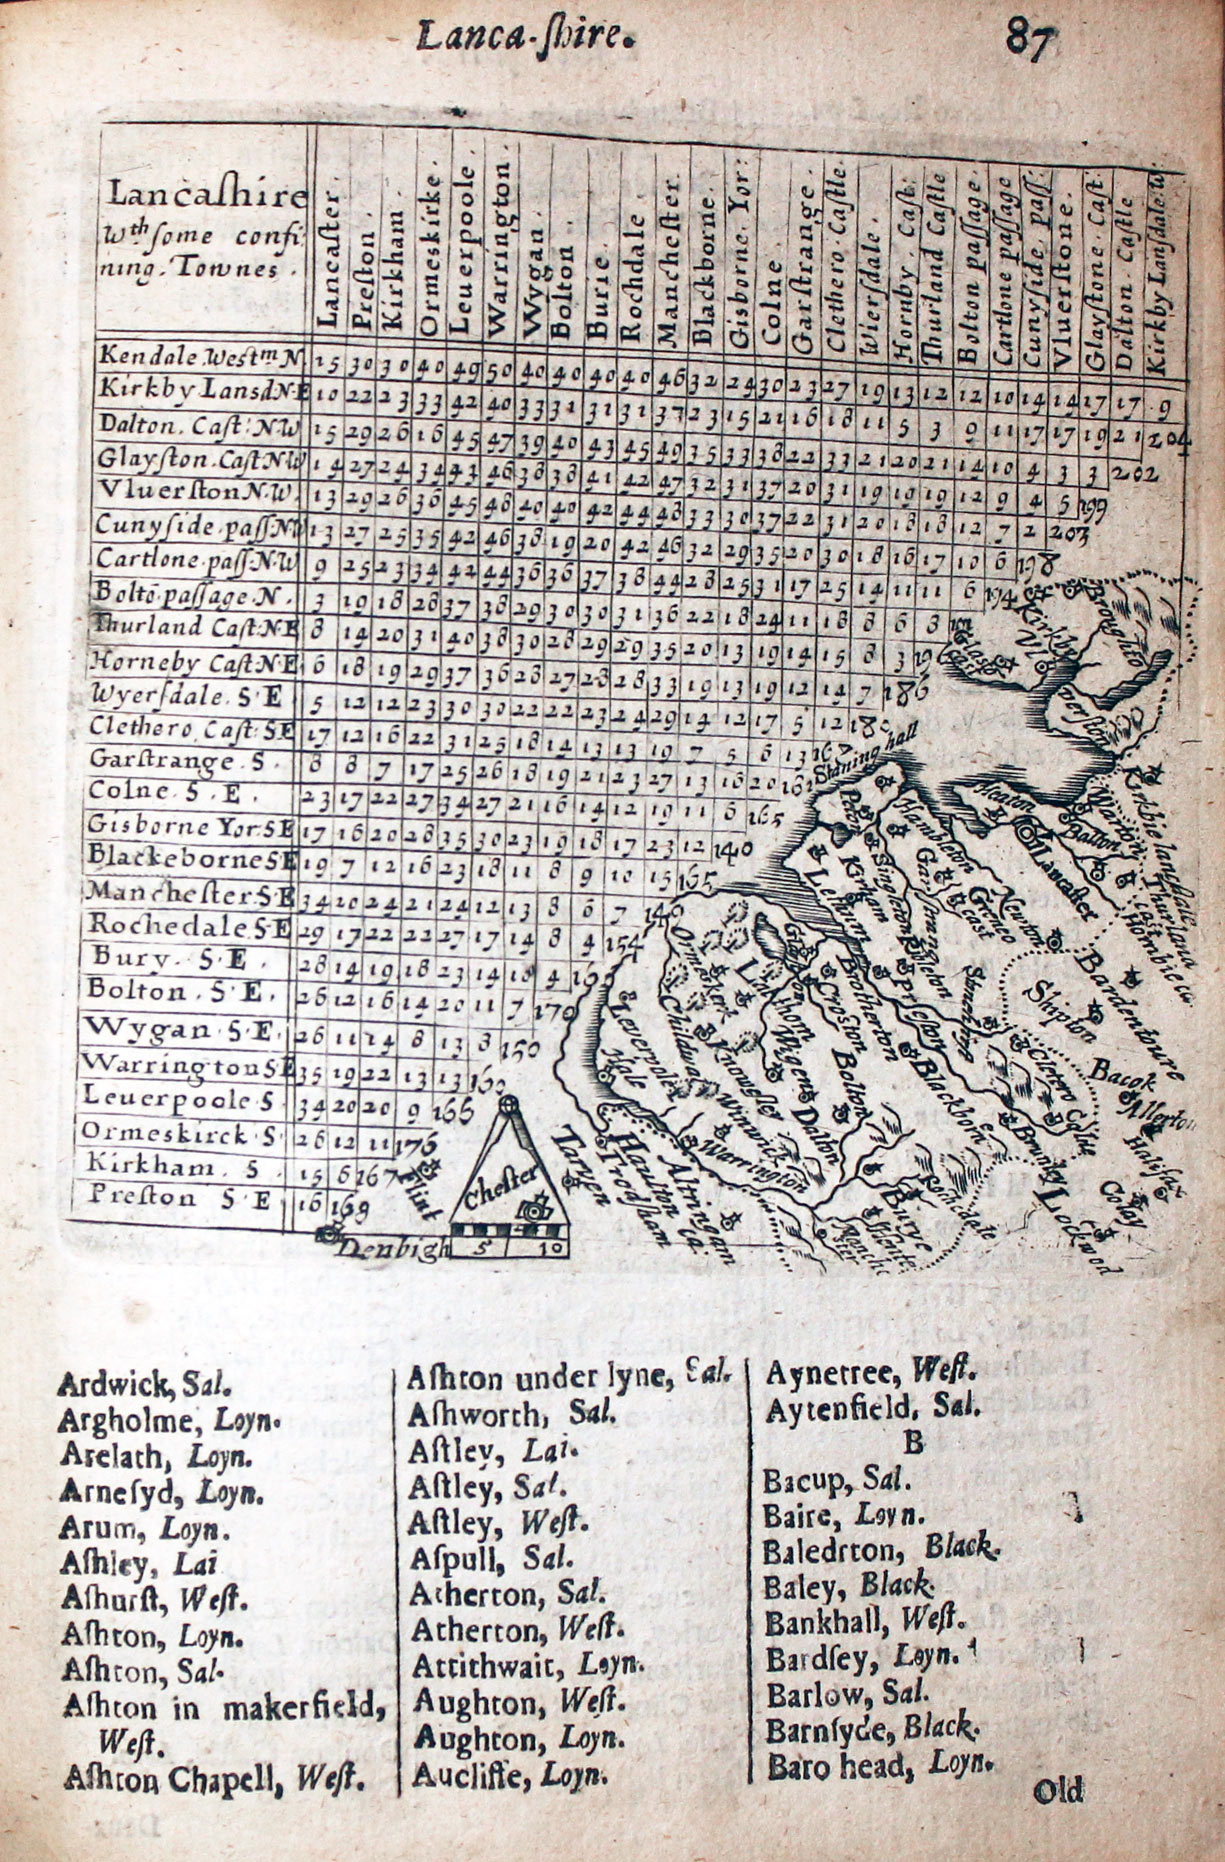 Lanca-ſhire.
87
Lancaſhire
Wth ſome confi
ning. Townes.
Lancaſter.
Preſton.
Kirkham.
Ormeskirke.
Leuerpoole.
Warrington.
Wygan.
Bolton.
Burie.
Rochdale.
Mancheſter.
Blackborne.
Gisborne. Yor:
Colne.
Garſtrange.
Clethero. Caſtle.
Wierſdale.
Hornby. Caſt:
Thurland Caſtle
Bolton paſſage.
Cartlone paſſage
Cunyſide. paſſ:
Vluerſtone.
Glayſtone. Caſt.
Dalton. Caſtle
Kirkby Lanſdale. w:
Kendale. Weſtm N. 15 30 30 40 49 50 40 40 40 40 46 32 24 30 23 27 19 13 12 12 10 14 14 17 17 9
Kirkby Lansd N·E 10 22 23 33 42 40 33 31 31 31 37 23 15 21 16 18 11 5 3 9 11 17 17 19 21 204
Dalton. Caſt: N·W 15 29 26 16 45 47 39 40 43 45 49 35 33 38 22 33 21 20 21 14 10 4 3 3 202
Glayſton. Caſt N·W 14 27 24 34 43 46 38 38 41 42 47 32 31 37 20 31 19 19 19 12 9 4 5 199
Vluerſton N.W. 13 29 26 36 45 48 40 40 42 44 48 33 30 37 22 31 20 18 18 12 7 2 203
Cunyſide. paſſ: NW 13 27 25 35 42 46 38 19 20 42 46 32 29 35 20 30 18 16 17 10 6 198
Cartlone paſſ: N·W 9 25 23 34 42 44 36 36 37 38 44 28 25 31 17 25 14 11 11 6 194
Boltō paſſage. N. 3 19 18 28 37 38 29 30 30 31 36 22 18 24 11 18 8 6 8
Thurland Caſt: N·E 8 14 20 31 40 38 30 28 29 29 35 20 13 19 14 15 8 3
Horneby Caſt: N·E 6 18 19 29 37 36 28 27 28 28 33 19 13 19 12 14 7 186
Wyerſdale. S·E 5 12 12 23 30 30 22 22 23 24 29 14 12 17 5 12 180
Clethero. Caſt: S·E 17 12 16 22 31 25 18 14 13 13 19 7 5 6 13 164
Garſtrange. S. 8 8 7 17 25 26 18 19 21 23 27 13 16 20 161
Colne. S. E. 23 17 22 27 34 27 21 16 14 12 19 11 6 165
Gisborne Yor: S·E 17 16 20 28 35 30 23 19 18 17 23 12 140
Blackeborne S·E 19 7 12 16 23 18 11 8 9 10 15 165
Mancheſter. S·E 34 20 24 21 24 12 13 8 6 7 140
Rochedale. S·E 29 17 22 22 27 17 14 8 4 154
Bury. S·E. 28 14 19 18 23 14 10 4 165
Bolton. S·E. 26 12 16 14 20 11 7 170
Wygan S·E. 26 11 14 8 13 8 150
Warrington S·E 35 19 22 13 13 160
Leuerpoole S. 34 20 20 9 166
Ormeskirck S· 26 12 11 176
Kirkham. S. 15 6 167
Preſton S·E 16 169
Kirkby
Broughto
Staining hall
Heaton
Lancaſter
Balton
Warton
Kirkbie lanſdale
Thurland
Hornbie ca
Hambleton
Garſtrange
Newton
Kirkham
Singleton
Lethum
Preſton
Bardenwure
Shipton
Stanehirſt
Clethero Caſtle
Bacok
Allerton
Halifax
Colay
Lockwod
Brunley
Blackborne
Brotherton
Croſton
Bolton
Ormeſkerk
Lathom
Wigen
Dalton
Knoweſley
Childwal
Leverpole
Hale
Winwick
Warrington
Burye
Rotchdale
Mancheſter
Tarven
Frodſham
Haulton
Altringam
Flint
Denbigh
Cheſter
5 10
Ardwick, Sal.
Argholme, Loyn.
Arelath, Loyn.
Arneſyd, Loyn.
Arum, Loyn.
Aſhley, Lai
Aſhurſt, Weſt.
Aſhton, Loyn.
Aſhton, Sal.
Aſhton in makerfield,
Weſt.
Aſhton Chapell, Weſt.
Aſhton under lyne, Sal.
Aſhworth, Sal.
Aſtley, Lai.
Aſtley, Sal.
Aſtley, Weſt.
Aſpull, Sal.
Atherton, Sal.
Atherton, Weſt.
Attithwait, Loyn.
Aughton, Weſt.
Aughton, Loyn.
Aucliffe, Loyn.
Aynetree, Weſt.
Aytenfield, Sal.
B
Bacup, Sal.
Baire, Loyn.
Baledrton, Black.
Baley, Black.
Bankhall, Weſt.
Bardſey, Loyn.
Barlow, Sal.
Barnſyde, Black.
Baro head, Loyn.
Old